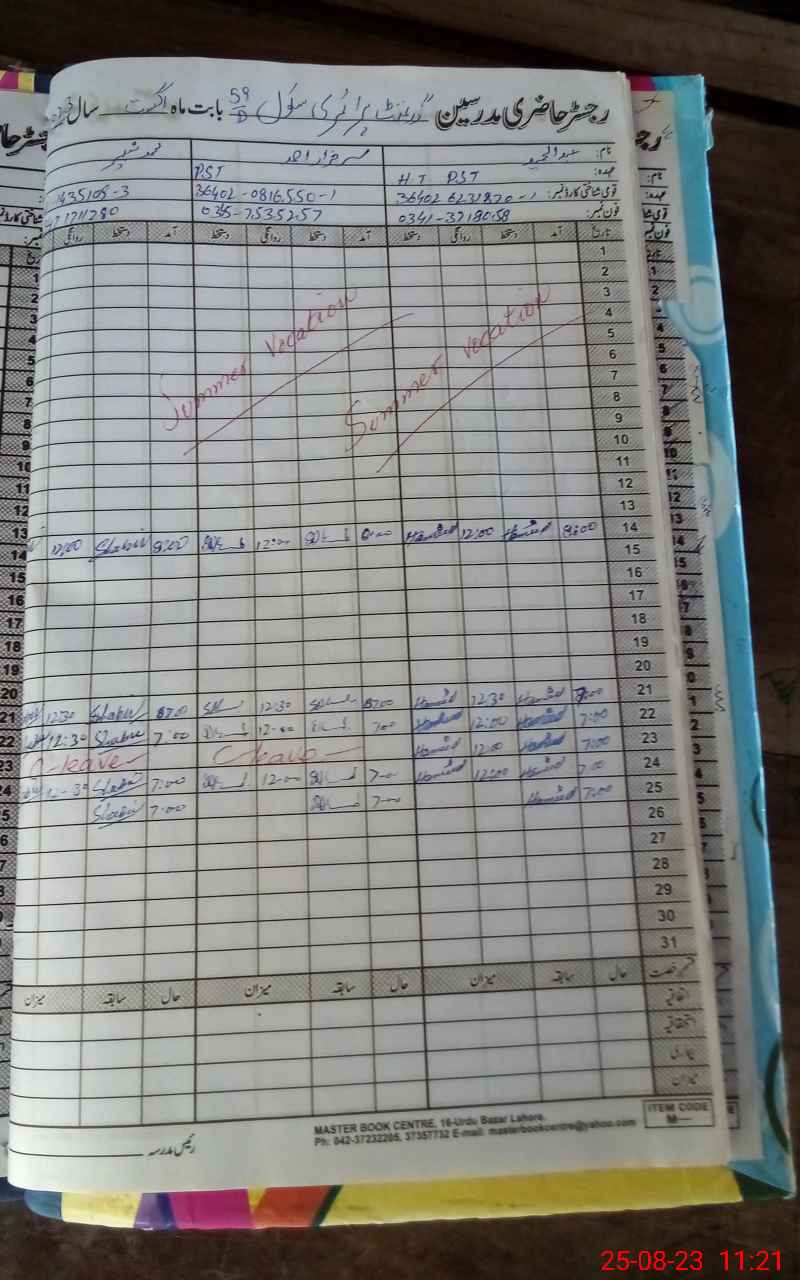 رجسٹر حاضری مدرسین گورنمنٹ پرائمری سکول 59/D بابت ماہ اگست سال
نام: عبدالحمید سرفراز احمد محمد شبیر
عہدہ: H T PST PST
قومی شناختی کارڈ نمبر: 36402 6231820-1 36402-0816550-1 1435105-3
فون نمبر: 0341-3718058 0345-7535257 1711780
تاریخ آمد دستخط روانگی دستخط آمد دستخط روانگی دستخط آمد دستخط روانگی
1
2
3
4
5
6
7
8
9
10
11
12
13
Summer Vecation
Summer vecation
14 8:00 Hamid 12:00 Hamid 8:00 12:00 8:00 Shabir 12:00
15
16
17
18
19
20
21 7:00 Hamid 12:30 Hamid 12:30 7:00 Shabir 12:30
22 7:00 Hamid 12:00 Hamid 7:00 12:00 7:00 Shabir 12:30
23 7:00 Hamid 12:00 Hamid C-leave C-leave
24 7:00 Hamid 12:00 Hamid 7:00 12:00 7:00 Shabir 12-30
25 7:00 Hamid 7:00 7:00 Shabir
26
27
28
29
30
31
قسم رخصت حال سابقہ میزان حال سابقہ میزان حال سابقہ میزان
اتفاقیہ
استحقاقیہ
بیماری
میزان
رئیس مدرسہ
MASTER BOOK CENTRE, 16-Urdu Bazar Lahore.
Ph: 042-37232205, 37357732 E-mail: masterbookcentre@yahoo.com
ITEM CODE
M—
25-08-23 11:21